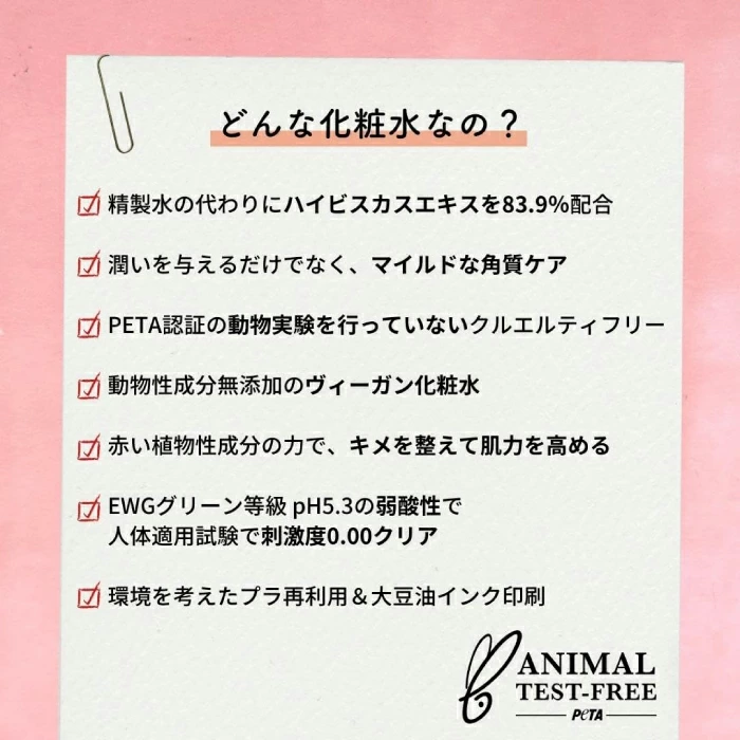 どんな化粧水なの？
精製水の代わりにハイビスカスエキスを83.9%配合
潤いを与えるだけでなく、マイルドな角質ケア
PETA認証の動物実験を行っていないクルエルティフリー
動物性成分無添加のヴィーガン化粧水
赤い植物性成分の力で、キメを整えて肌力を高める
EWGグリーン等級 pH5.3の弱酸性で
人体適用試験で刺激度0.00クリア
環境を考えたプラ再利用＆大豆油インク印刷
ANIMAL
TEST-FREE
PETA